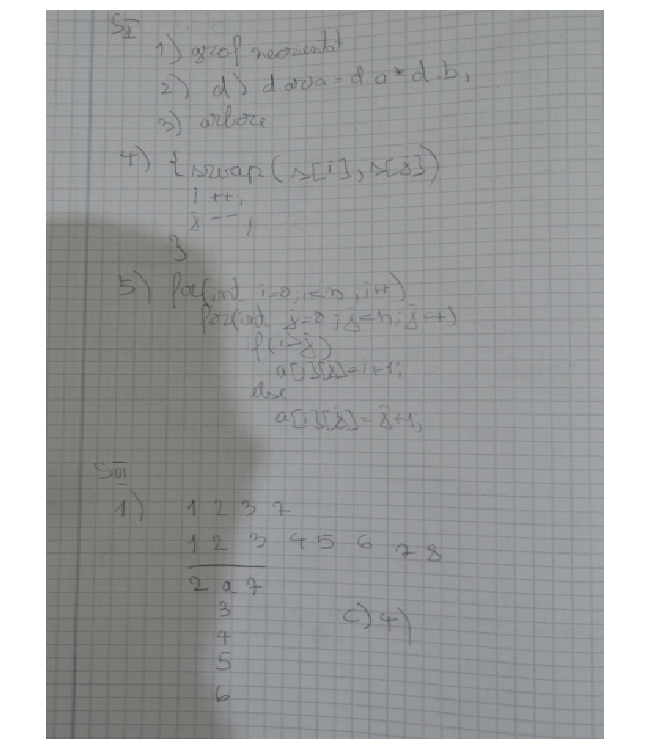 SII
1) graf neorientat
2) d) d.aria = d.a * d.b;
3) arbore
4) { swap(s[i], s[j])
i++;
j--;
}
5) for(int i=0; i<n; i++)
for(int j=0; j<n; j++)
if(i>j)
a[i][j]=i+1;
else
a[i][j]=j+1;
SIII
1) 1 2 3 7
1 2 3 4 5 6 7 8
2 a 7
3
4
5
6
c) 4)